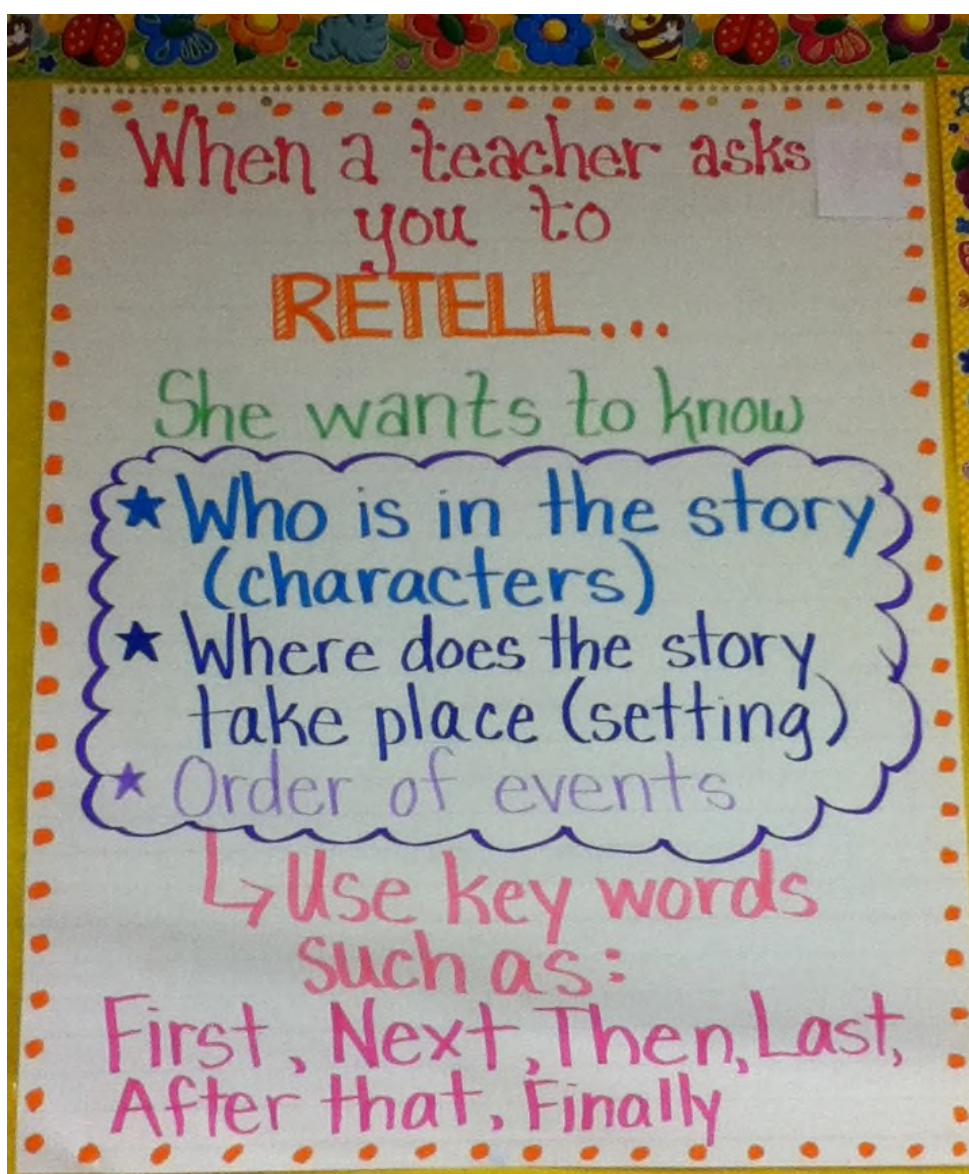 When a teacher asks
you to
RETELL...
She wants to know
★ Who is in the story
(characters)
★ Where does the story
take place (setting)
★ Order of events
↳ Use key words
such as:
First, Next, Then, Last,
After that, Finally